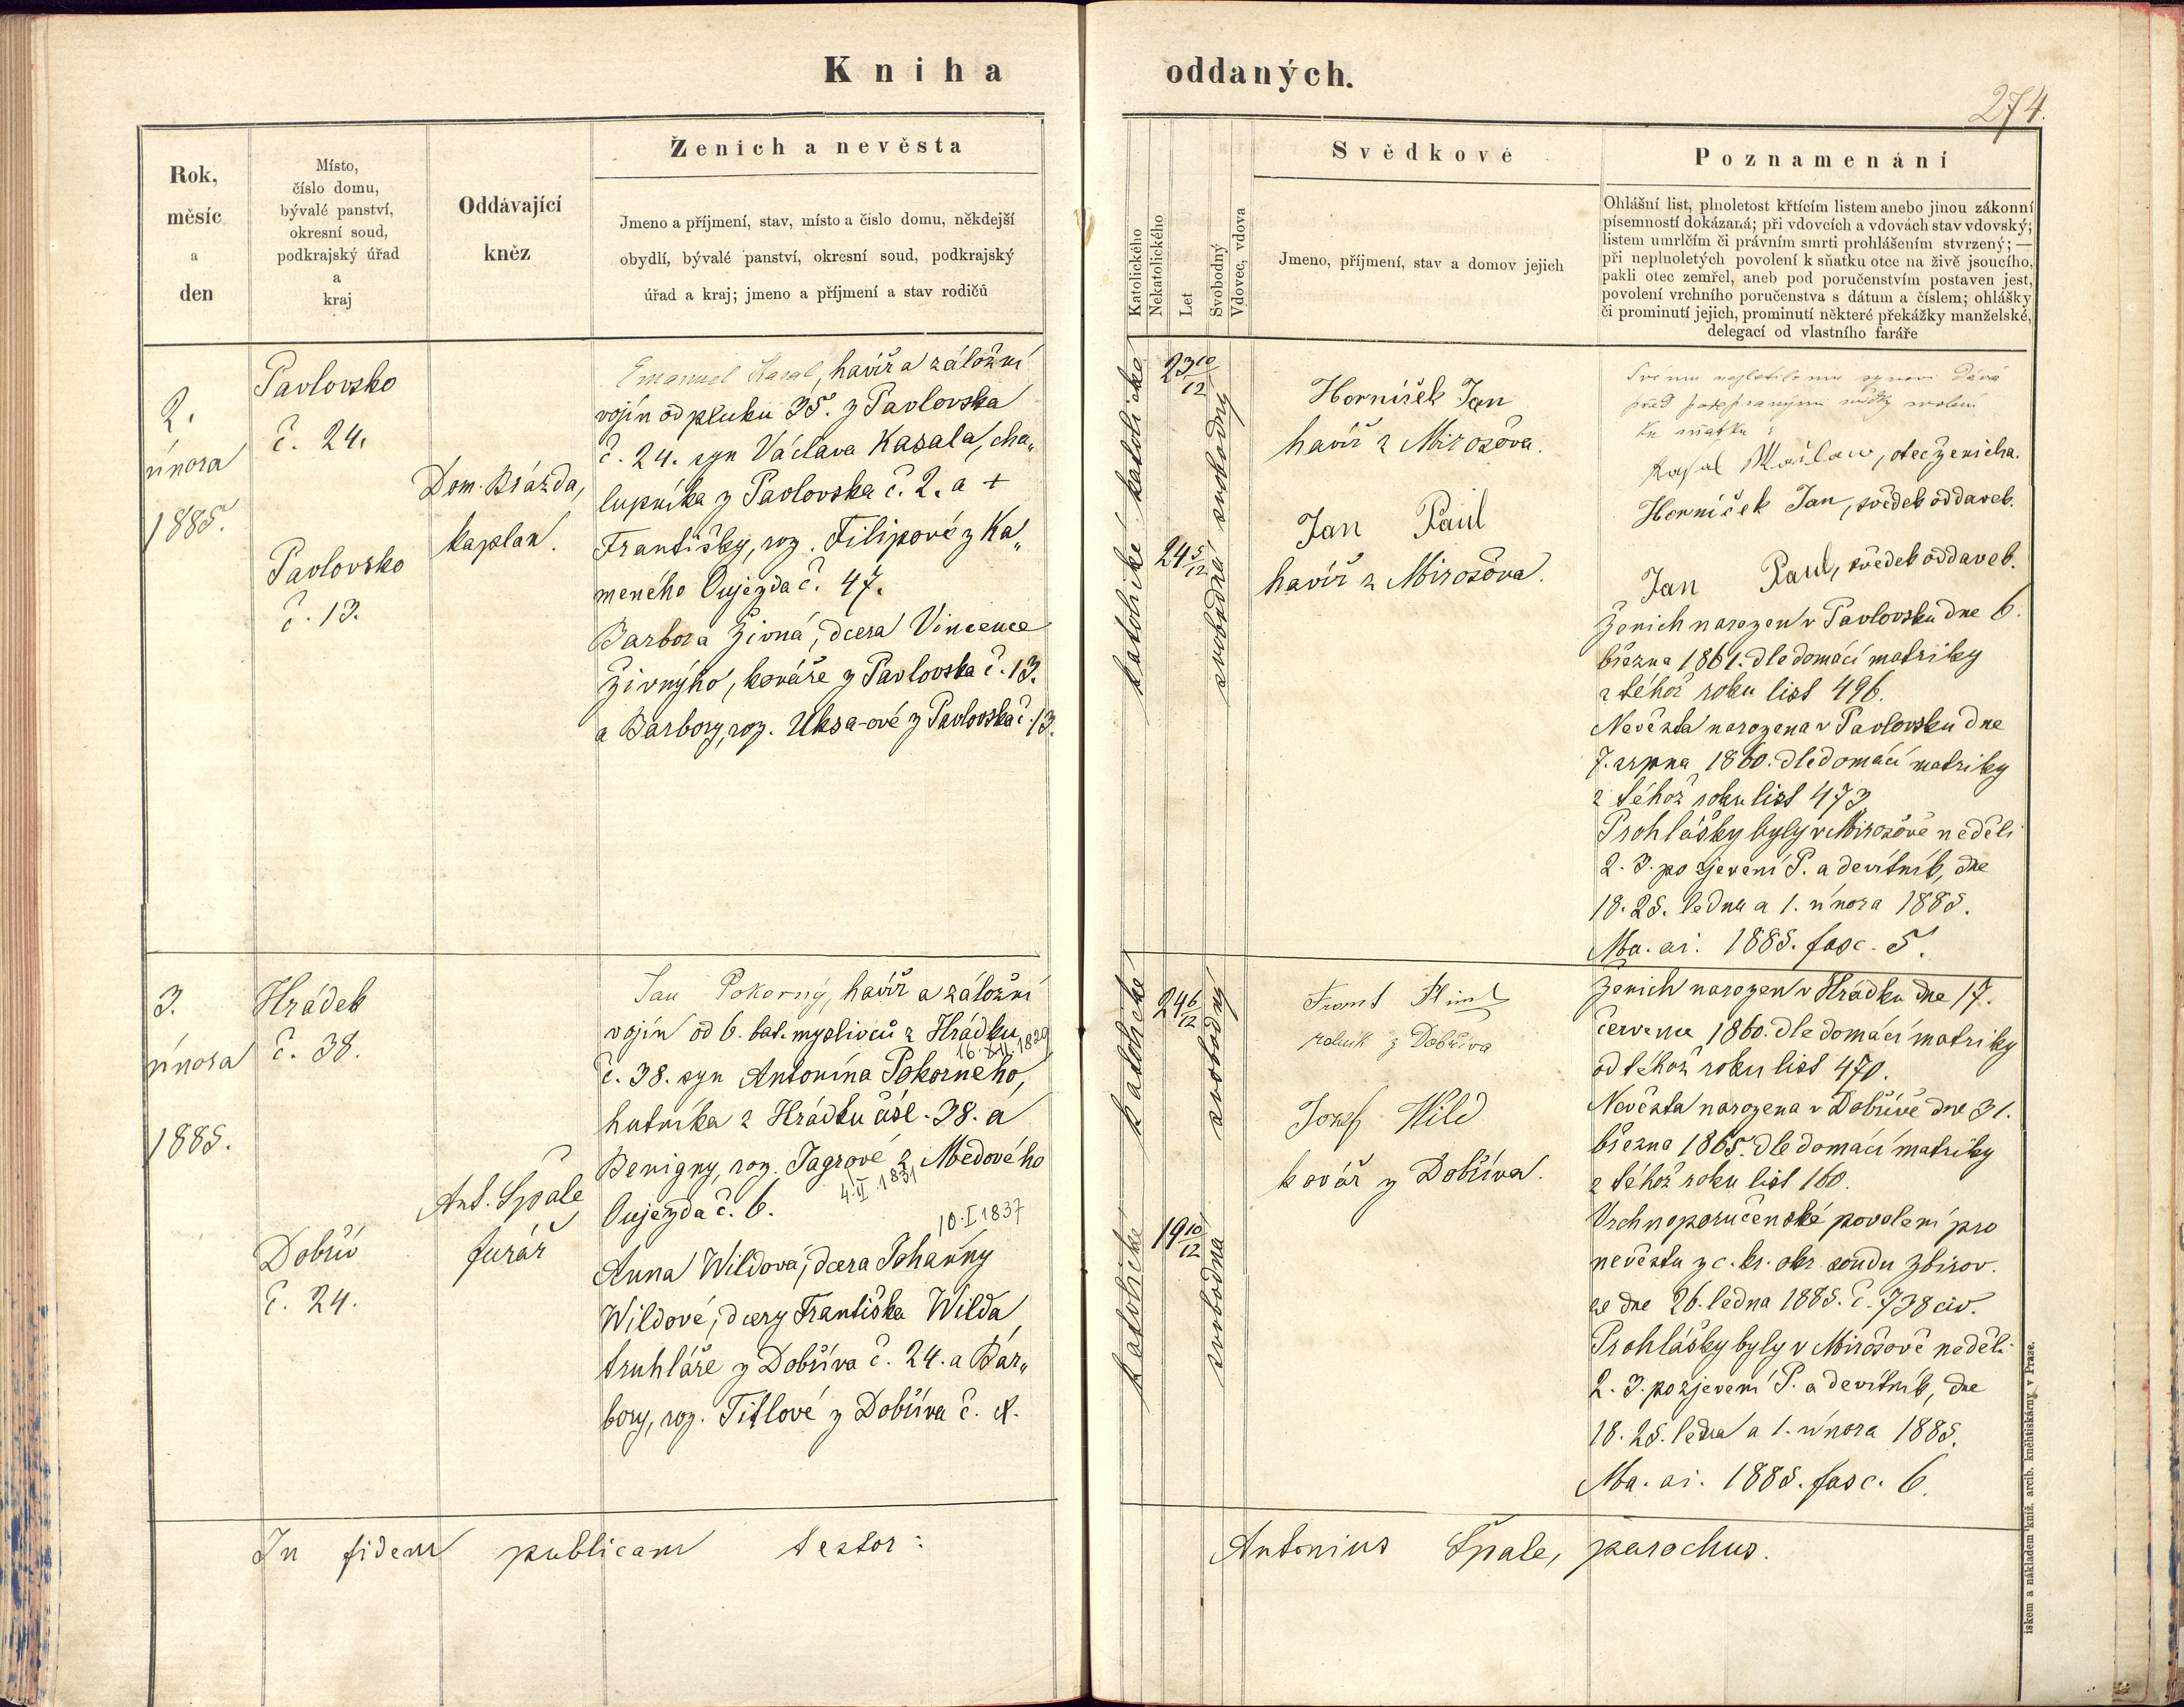 Kniha oddaných.
274.
Rok,
měsíc
a
den
Místo,
číslo domu,
bývalé panství,
okresní soud,
podkrajský úřad
a
kraj
Oddávající
kněz
Ženich a nevěsta
Jmeno a příjmení, stav, místo a číslo domu, někdejší
obydlí, bývalé panství, okresní soud, podkrajský
úřad a kraj; jmeno a příjmení a stav rodičů
Katolického
Nekatolického
Let
Svobodný
Vdovec, vdova
Svědkové
Jmeno, příjmení, stav a domov jejich
Poznamenání
Ohlášní list, plnoletost křtícím listem anebo jinou zákonní
písemností dokázaná; při vdovcích a vdovách stav vdovský;
listem umrlčím či právním smrti prohlášením stvrzený; —
při neplnoletých povolení k sňatku otce na živě jsoucího,
pakli otec zemřel, aneb pod poručenstvím postaven jest,
povolení vrchního poručenstva s dátum a číslem; ohlášky
či prominutí jejich, prominutí některé překážky manželské,
delegací od vlastního faráře
2.
února
1885.
Pavlovsko
č. 24.
Pavlovsko
č. 13.
Dom. Brázda,
kaplan.
Emanuel Kasal, havíř a záložní
vojín od pluku 35. z Pavlovska
č. 24. syn Václava Kasala, cha„
lupníka z Pavlovska č. 2. a +
Františky, roz. Filipové z Ka„
meného Oujezda č. 47.
Barbora Živná, dcera Vincence
Živnýho, kováře z Pavlovska č. 13.
a Barbory, roz. Uksa-ové z Pavlovska č. 13.
katolické katolické
23 10/12
24 5/12
svobodná svobodný
Horníček Jan
havíř z Mirošova.
Jan Paul
havíř z Mirošova.
Svému nezletilému synovi dává
před podepsanými svědky svolení
ku sňatku:
Kasal Wáclaw, otec ženicha.
Horníček Jan, svědek oddavek.
Jan Paul, svědek oddavek.
Ženich narozen v Pavlovsku dne 6.
března 1861. dle domácí matriky
z téhož roku list 496.
Nevěsta narozena v Pavlovsku dne
7. srpna 1860. dle domácí matriky
z téhož roku list 473
Prohlášky byly v Mirošově neděli
2. 3. po zjevení P. a devítník, dne
18. 25. ledna a 1. února 1885.
Ma. ai. 1885. fasc. 5.
3.
února
1885.
Hrádek
č. 38.
Dobřív
č. 24.
Ant. Špale
farář
Jan Pokorný, havíř a záložní
vojín od 6. bat. myslivců z Hrádku
16. XII. 1829
č. 38. syn Antonína Pokorného,
hutníka z Hrádku čísl. 38. a
Benigny, roz. Jagrové z Medového
4. II. 1831
Oujezda č. 6.
10. I 1837
Anna Wildová, dcera Johanny
Wildové, dcery Františka Wilda
truhláře z Dobříva č. 24. a Bar„
bory, roz. Titlové z Dobříva č.
katolické katolické
24 6/12
19 10/12
svobodná svobodný
rolník z Dobříva
Josef Wild
kovář z Dobříva.
Ženich narozen v Hrádku dne 17.
července 1860. dle domácí matriky
od téhož roku list 470.
Nevěsta narozena v Dobřívě dne 31.
března 1865. dle domácí matriky
z téhož roku list 160.
Vrchnoporučenské povolení pro
nevěstu z c. kr. okr. soudu Zbirov.
ze dne 26. ledna 1885. č. 738 civ.
Prohlášky byly v Mirošově neděli
2. 3. po zjevení P. a devítník, dne
18. 25. ledna a 1. února 1885.
Ma. ai. 1885. fasc. 6.
In fidem publicam testor: Antonius Špale, parochus.
iskem a nákladem kníž. arcib. kněhtiskárny v Praze.